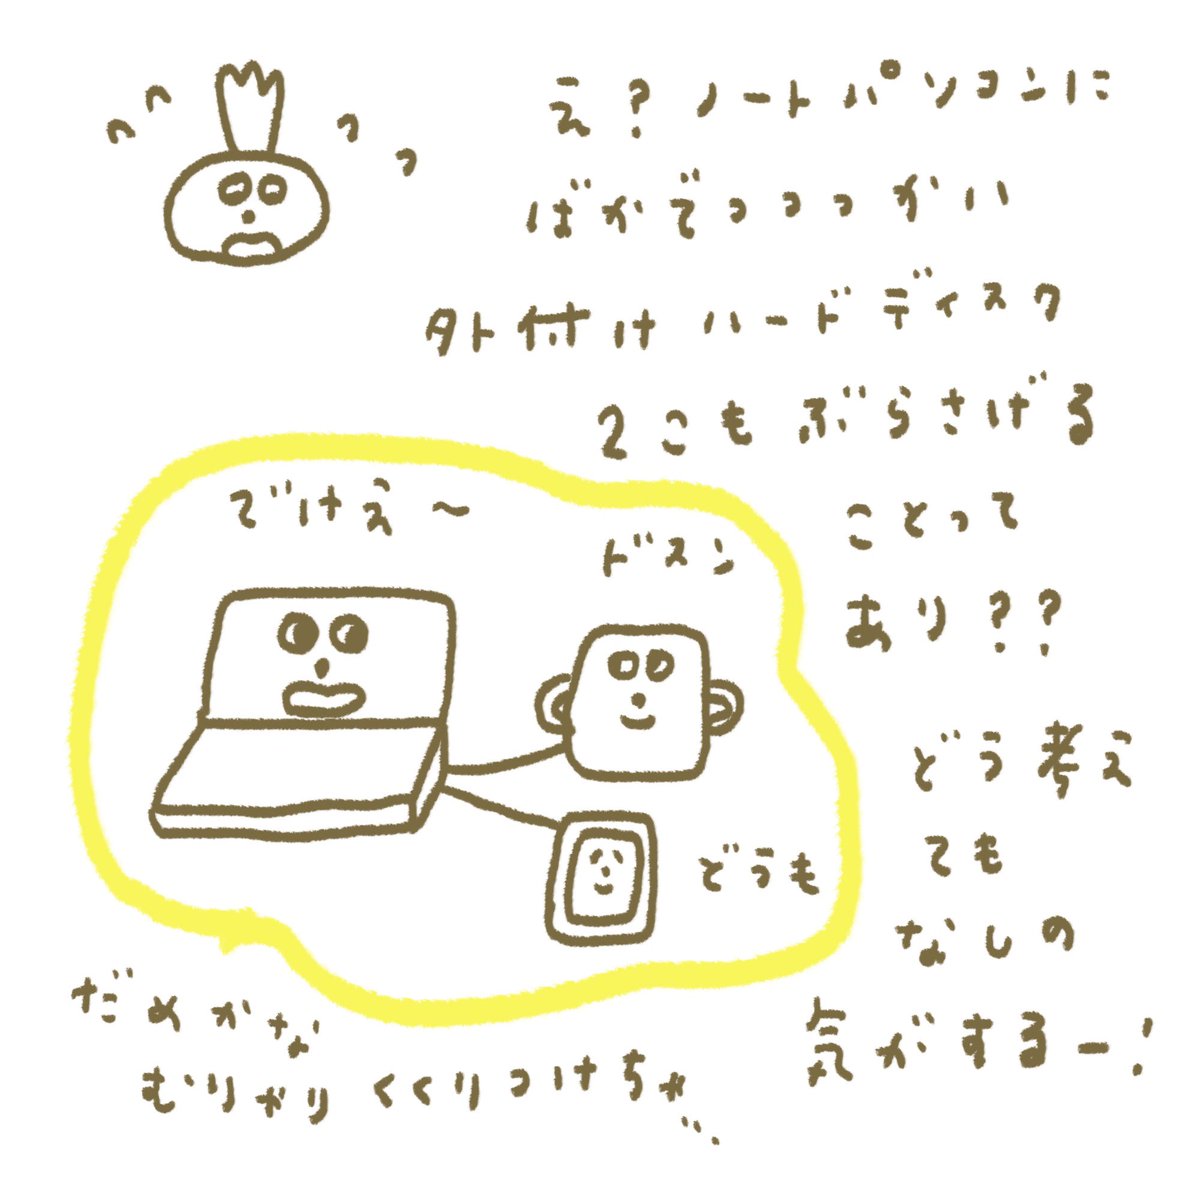 え?ノートパソコンに
ばかでっっっかい
外付けハードディスク
2こもぶらさげる
ことって
あり??
どう考え
ても
なしの
気がするー!
でけえ〜
ドスン
どうも
だめかな
むりやりくくりつけちゃ…